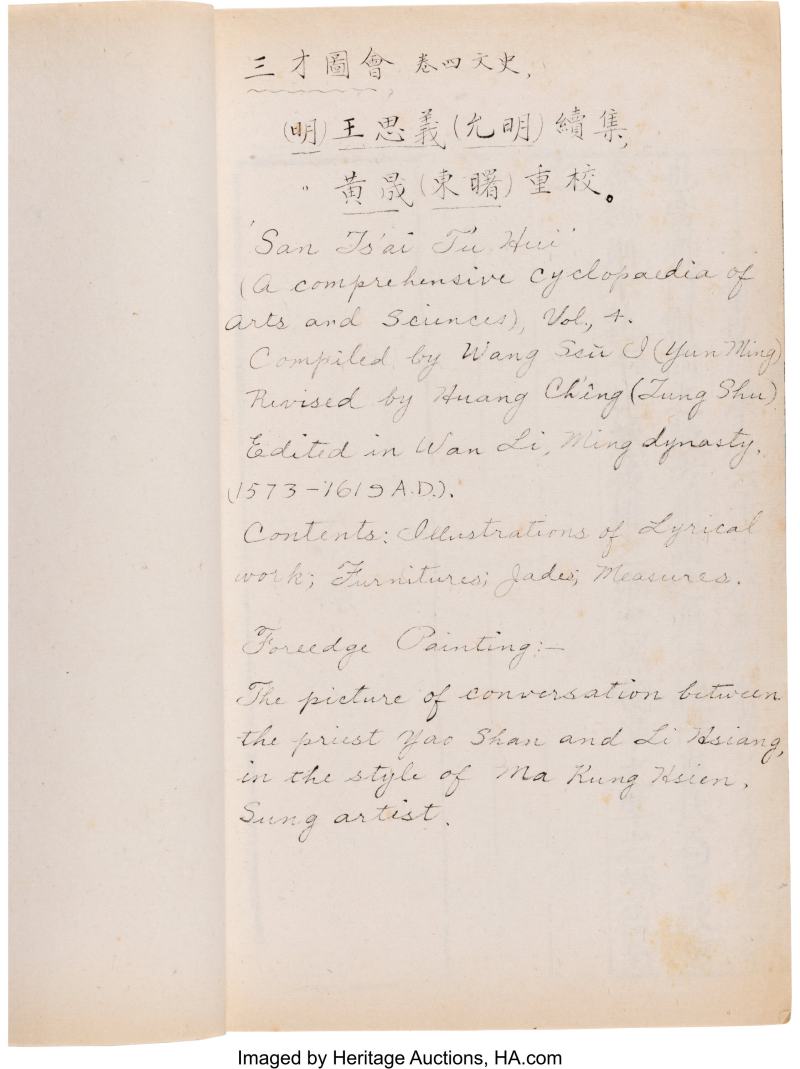 三才圖會 卷四文史,
(明)王思義(允明)續集,
〃 黃晟(東曙)重校。
'San Ts'ai T'u Hui'
(A comprehensive cyclopaedia of
Arts and Sciences), Vol., 4.
Compiled by Wang Ssŭ I (Yun Ming)
Revised by Huang Ch'êng (Tung Shu)
Edited in Wan Li, Ming dynasty,
(1573-1619 A.D.).
Contents: Illustrations of Lyrical
work; Furnitures; Jades; Measures.
Foreedge Painting:—
The picture of conversation between
the priest Yao Shan and Li Hsiang,
in the style of Ma Kung Hsien,
Sung artist.
Imaged by Heritage Auctions, HA.com